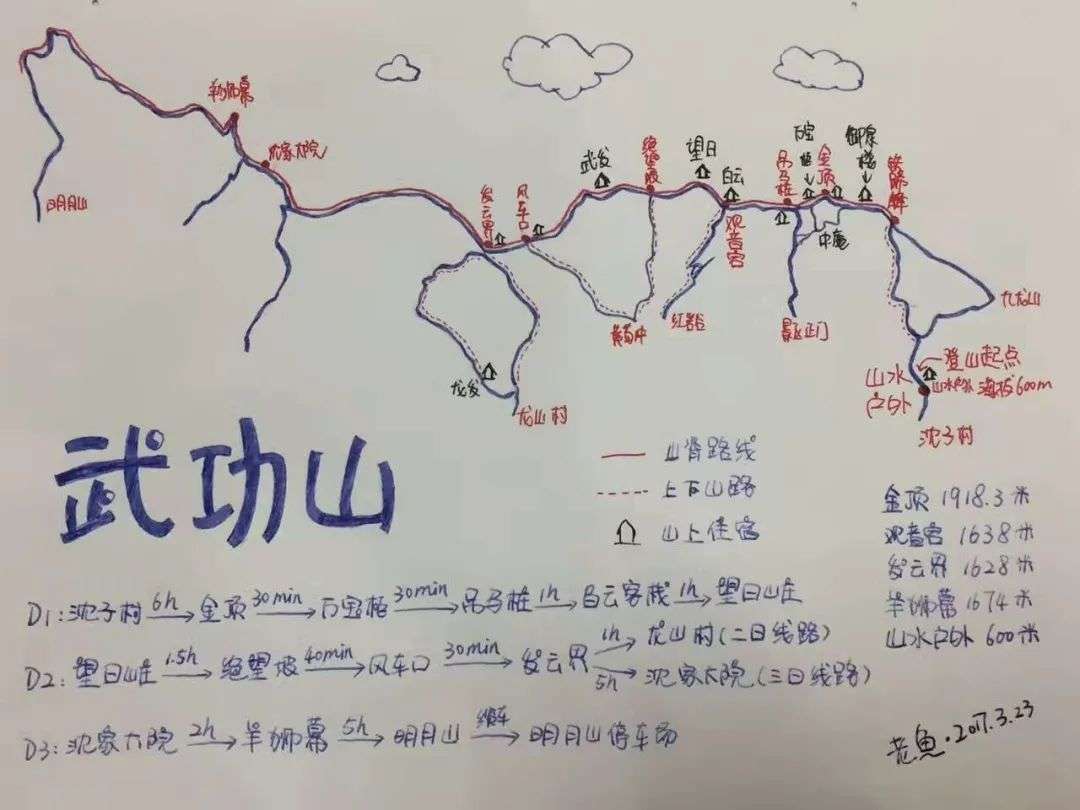 羊狮幕
沈家大院
明月山
发云界
风车口
武发
绝望坡
望日
白云
观音宕
吊马桩
万宝柜
金顶
御源楼
铁蹄峰
中庵
黄狮冲
红岩谷
景区正门
九龙山
龙发
龙山村
登山起点
山水户外
山水户外 海拔600m
沈子村
武功山
山脊路线
上下山路
山上住宿
金顶 1918.3米
观音宕 1638米
发云界 1628米
羊狮幕 1674米
山水户外 600米
D1:沈子村 6h 金顶 30min 万宝柜 30min 吊马桩 1h 白云客栈 1h 望日山庄
D2:望日山庄 1.5h 绝望坡 40min 风车口 30min 发云界 1h 龙山村(二日线路)
5h 沈家大院(三日线路)
D3:沈家大院 2h 羊狮幕 5h 明月山 缆车 明月山停车场
老鱼·2017.3.23